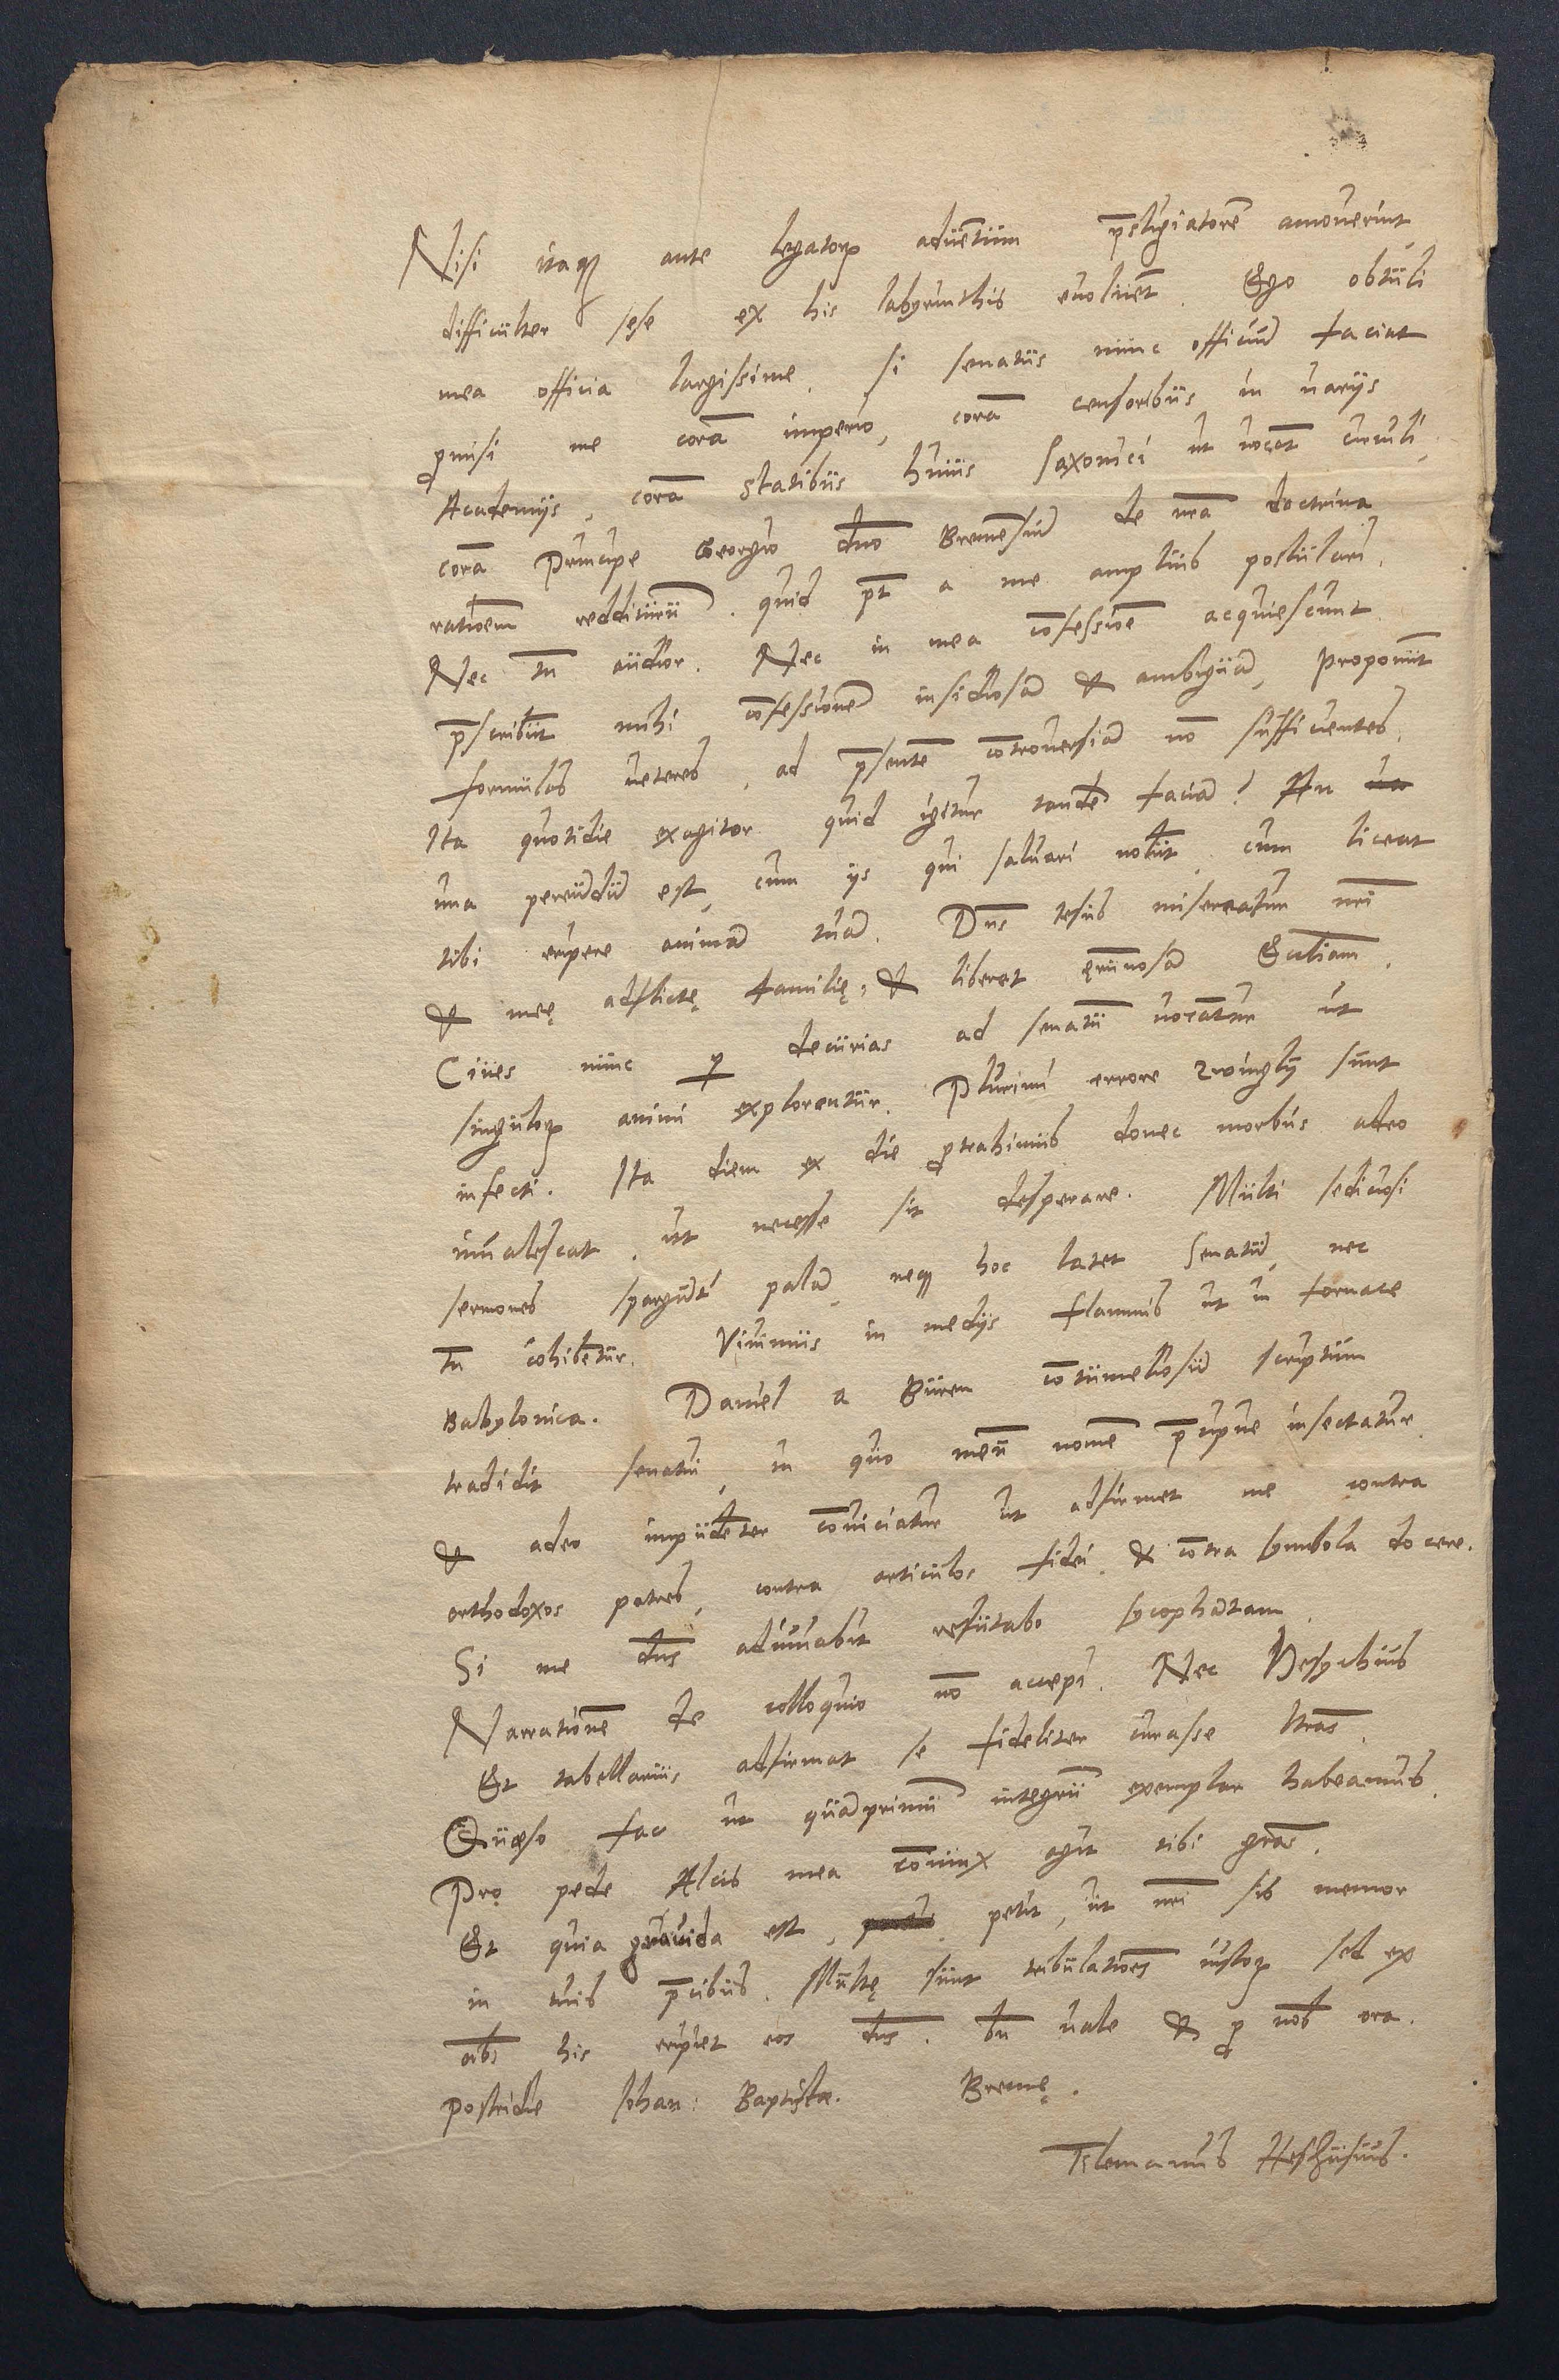 Nisi itaqꝫ ante legatorꝝ aduētum p̄stigiatorē amouerint,
difficulter sese ex his labyrinthis euoluēt. Ego obtuli
mea officia largissime, si senatus nunc officiū faciat
ꝓmisi me corā imperio, corā censoribus in varijs
Academijs, corā statibus huius Saxonici ut vocāt circuli,
corā Principe Georgio dn̄o Bremēsiū de n̄ra doctrina
ratioēm redditurū. quid pt̄ a me amplius postulari,
Nec tn̄ audior. Nec in mea cōfessioē acquiescunt.
p̄scribūt mihi cōfessionē insidiosā & ambiguā, proponūt
formulas ueteres, ad p̄sentē cōtrouersiā nō sufficientes,
Ita quotidie exagitor quid igitur tandē faciā? An ua
una pereūdū est, cum ijs qui saluari nolūt, cum liceat
tibi eripere animā tuā. Dn̄s Iesus misereatur n̄ri
& meę adflictę familię, & liberet ęrūnosā Eccliam.
Ciues nunc ꝑ decurias ad senatū vocātur ut
singulorꝝ animi explorentur. Plurimi errore Zwinglij sunt
infecti. Ita diem ex die ꝓtrahimus donec morbus adeo
inualescat, ut necesse sit desperare. Multi sediciosi
sermones spargūtʳ palā, neqꝫ hoc latet Senatū, nec
tn̄ cohibētur. Viuimus in medijs flammis ut in fornace
Babylonica. Daniel a Buren cōtumeliosū scriptum
tradidit senatui, in quo meū nomē p̄cipue insectatur
& adeo impudēter cōuiciatur ut adfirmet me contra
orthodoxos patres, contra articulos fidei, & cōtra symbola docere.
Si me dn̄s adiuuabit refutabo sycophātam.
Narrationē de colloquio nō accepi. Nec Hesychius
Et tabellarius adfirmat se fideliter curasse lr̄as.
Quæso fac ut quāprimū integrū exemplar habeamus.
Pro pede Alcis mea cōiunx agit tibi gr̄as.
Et quia grauida est, petit, ut n̄ri sis memor
in tuis p̄cibus. Multę sunt tribulatioēs iustorꝝ sed ex
oībs his eripiet eos dn̄s. bn̄ uale & ꝓ nob̄ ora.
Postridie Iohan: Baptistæ. Bremę.
Tilemanus Heshusius.